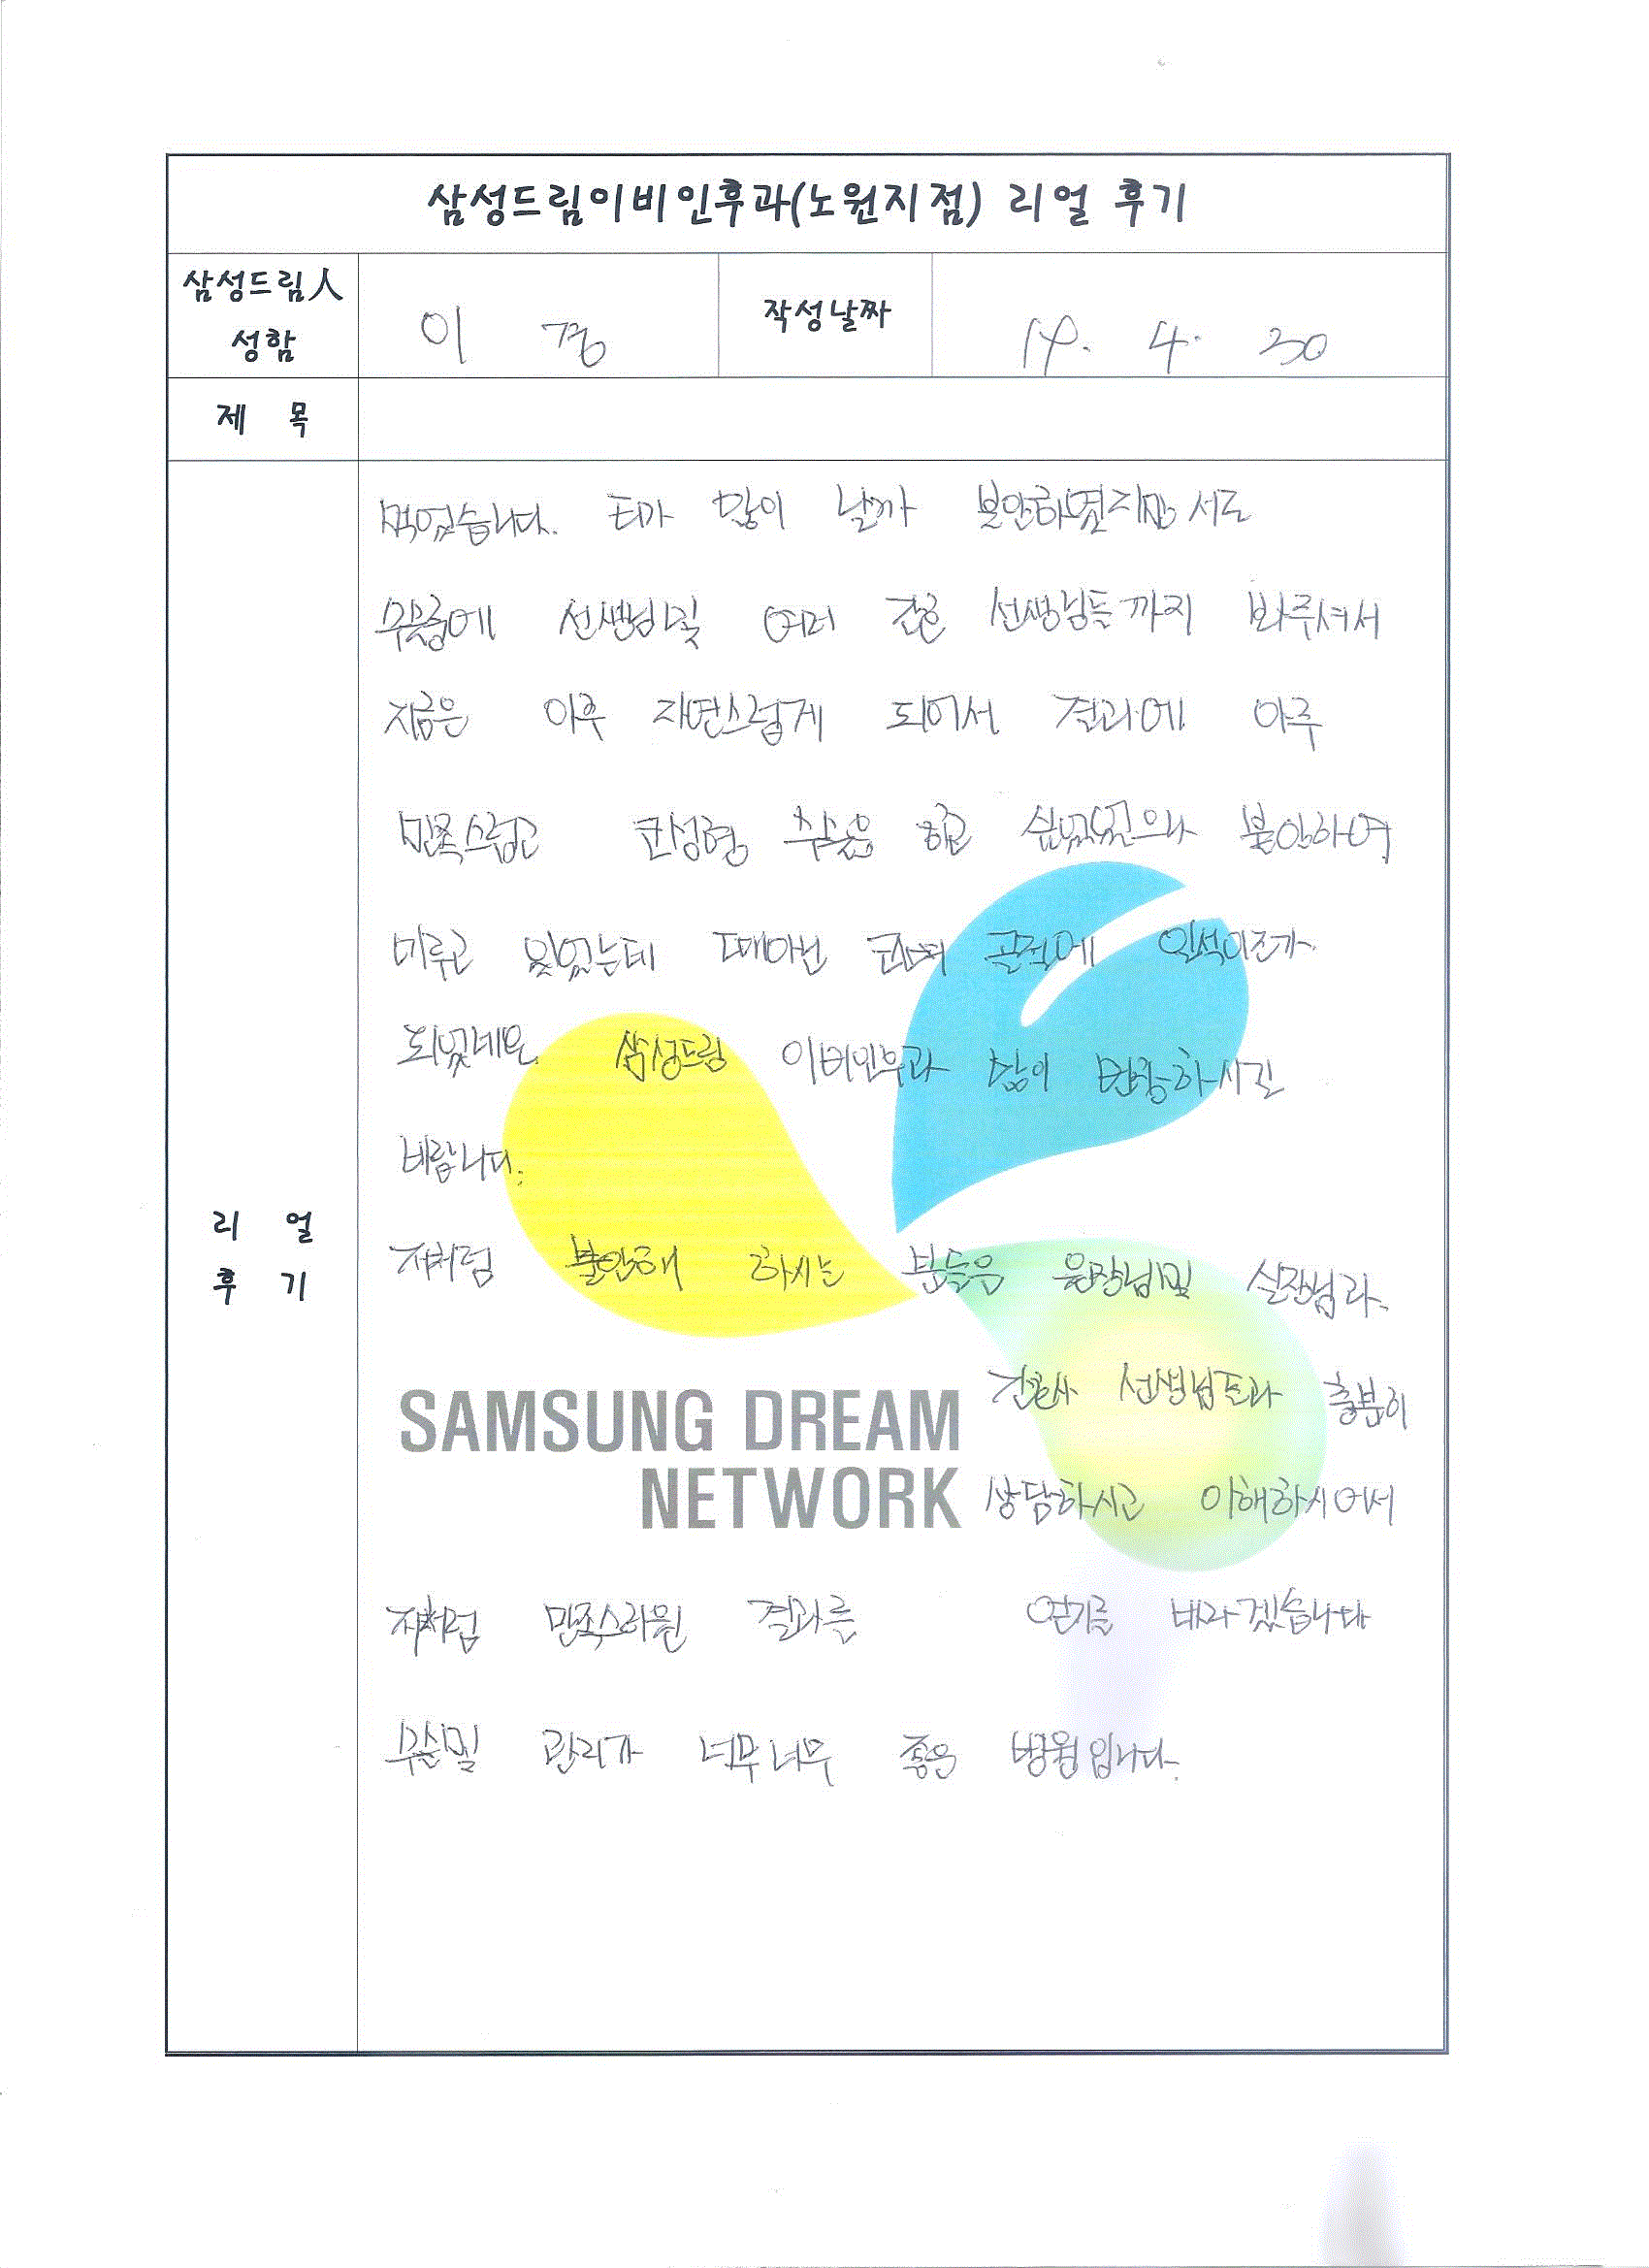 삼성드림이비인후과(노원지점) 리얼 후기
삼성드림人
성함
이 경
작성날짜
14. 4. 30
제 목
먹었습니다. 티가 많이 날까 불안하였지만 서도
수술중에 선생님및 여러 간호 선생님들까지 봐주셔서
지금은 아주 자연스럽게 되어서 결과에 아주
만족스럽고 코성형 수술을 하고 불안하여
미루고 있었는데 때아닌 골절에
되었네요. 삼성드림 이비인후과 많이 번창하시길
바랍니다.
리 얼
후 기
저처럼 불안해 하시는 분들은 원장님및 실장님과
간호사 선생님들과 충분히
SAMSUNG DREAM
NETWORK
상담하시고 이해하시어서
저처럼 만족스러운 결과를 얻기를 바라겠습니다
수술및 관리가 너무너무 좋은 병원입니다.